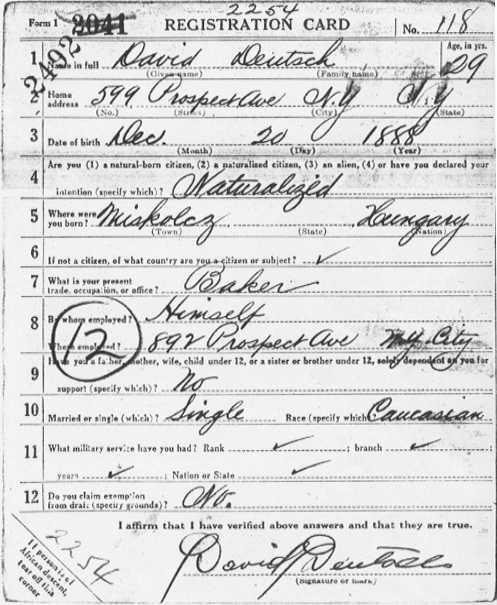 2254
Form 1 2041 REGISTRATION CARD No. 118
2402
1 Name in full David Deutsch Age, in yrs. 29
(Given name) (Family name)
2 Home address 599 Prospect Ave N.Y N.Y
(No.) (Street) (City) (State)
3 Date of birth Dec. 20 1888
(Month) (Day) (Year)
4 Are you (1) a natural-born citizen, (2) a naturalized citizen, (3) an alien, (4) or have you declared your
intention (specify which)? Naturalized
5 Where were you born? Miskolcz Hungary
(Town) (State) (Nation)
6 If not a citizen, of what country are you a citizen or subject? ✓
7 What is your present trade, occupation, or office? Baker
8 By whom employed? Himself
Where employed? 892 Prospect Ave N.Y. City
12
9 Have you a father, mother, wife, child under 12, or a sister or brother under 12, solely dependent on you for
support (specify which)? No
10 Married or single (which)? Single Race (specify which)? Caucasian
11 What military service have you had? Rank ✓ ; branch ✓
years ✓ ; Nation or State ✓
12 Do you claim exemption from draft (specify grounds)? No.
I affirm that I have verified above answers and that they are true.
2254
David Deutsch
(Signature or mark)
If person is of African descent, tear off this corner